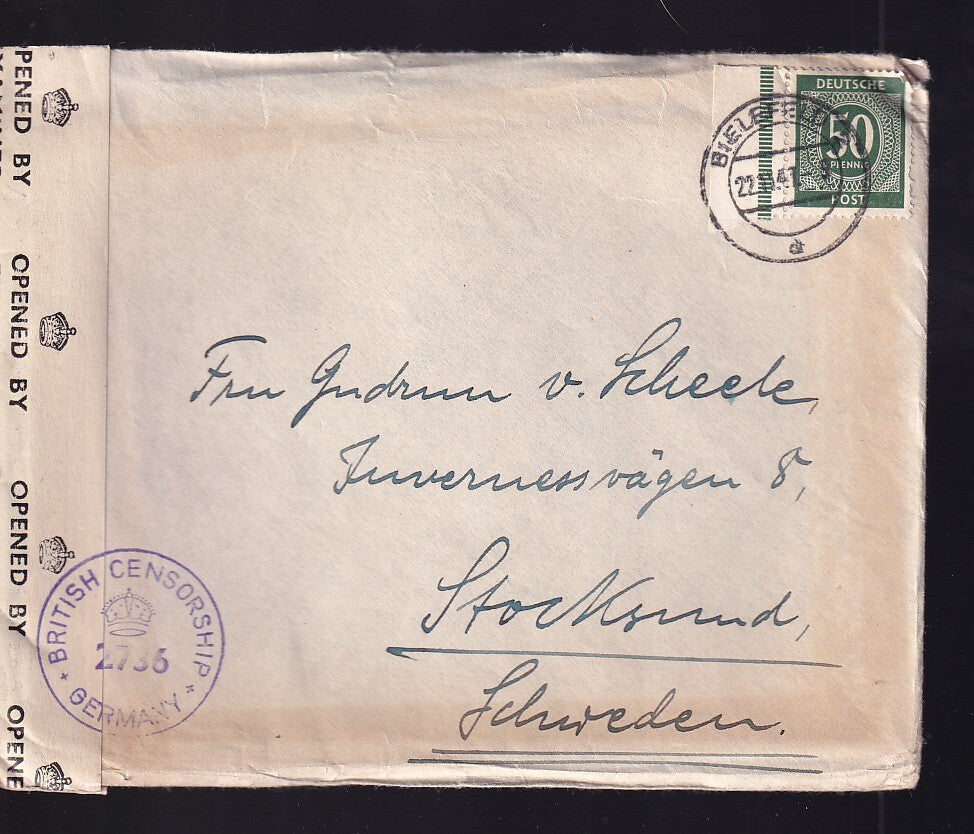 PENED BY
OPENED BY
OPENED BY
OPENE
DEUTSCHE
50
PFENNIG
POST
BIELEFELD
a
Frau Gudrun v. Scheele,
Invernessvägen 8,
Stocksund,
Schweden.
BRITISH CENSORSHIP
2736
* GERMANY *